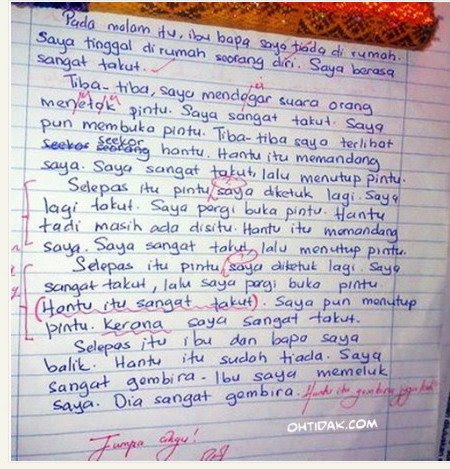 Pada malam itu, ibu bapa saya tiada di rumah.
Saya tinggal di rumah seorang diri. Saya berasa
sangat takut.
Tiba-tiba, saya mendegar suara orang
menetok pintu. Saya sangat takut. Saya
pun membuka pintu. Tiba-tiba saya terlihat
seekor
seekor seorang hantu. Hantu itu memandang
saya. Saya sangat takut, lalu menutup pintu.
Selepas itu pintu saya diketuk lagi. Saya
lagi takut. Saya pergi buka pintu. Hantu
tadi masih ada disitu. Hantu itu memandang
saya. Saya sangat takut, lalu menutup pintu.
Selepas itu pintu saya diketuk lagi. Saya
sangat takut, lalu saya pergi buka pintu
(Hantu itu sangat takut). Saya pun menutup
pintu. Kerana saya sangat takut.
Selepas itu ibu dan bapa saya
balik. Hantu itu sudah tiada. Saya
sangat gembira. Ibu saya memeluk
saya. Dia sangat gembira. Hantu itu gembira juga kah?
OHTIDAK.COM
Jumpa cikgu!